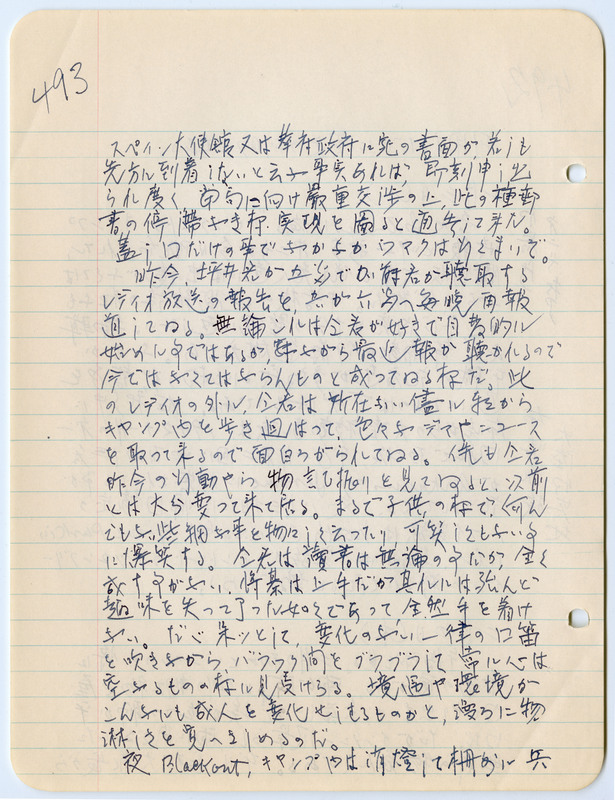 493
スペイン大使館又は華府政府に宛の書面が、若しも
先方に到着しないと云ふ事実あれば、即刻申し出
られ度く、当局に向け厳重交渉の上、此の種郵
書の停滞なき様、実現を図ると通告して来た。
蓋し口だけの事でなかなかワマクは行くまいぞ。
昨今、坪井君が五 で 君が聴取する
レディオ放送の報告を、 が六 へ毎晩 報
道してゐる。無論これは 君が好きで自発的に
始めた事ではあるが、 ながら最近報が聴かれるので
今ではなくてはならんものと成つてゐる様だ。此
のレディオの外に、 君は所在ない儘に 朝から
キャンプ内を歩き廻はつて、色々なデマやニュース
を取つて来るので面白ろがられてゐる。 も 君
昨今の行動やら物言ひ振りを見てゐると、以前
とは大分変つて来て居る。まるで子供の様で何ん
でもない些細な事を物にしく云つたり、可笑しくもない事
に爆笑する。 君は読書は無論の事だが、全く
致す事がない。将棋は上手だが其れには殆んど
趣味を失つて了つた如くであつて、全然手を着け
ない。だゞ 朝 ッとして、変化のない一律の口笛
を吹きながら、バラック内をブラブラして 常に心は
空なるものの様に見受けらる。境遇や環境が
こんなにも 人を変化せしむるものかと、漫ろに物
淋しさを覚へ しめるのだ。
夜 Blackout, キャンプ内は消燈して柵外に兵